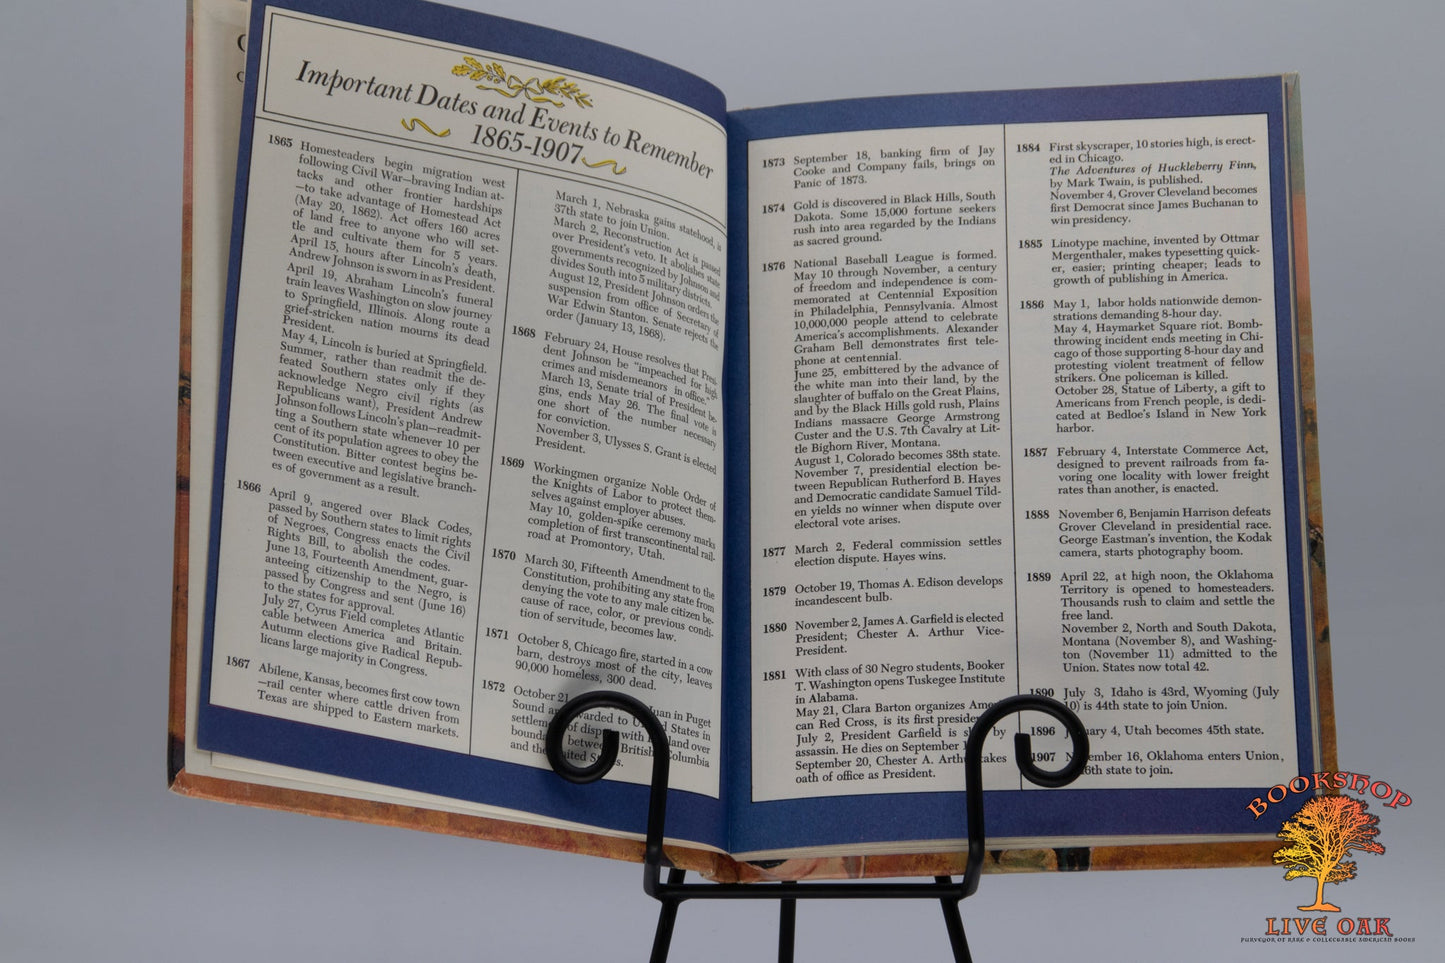 Important Dates and Events to Remember
1865-1907
1865 Homesteaders begin migration west
following Civil War—braving Indian at-
tacks and other frontier hardships
—to take advantage of Homestead Act
(May 20, 1862). Act offers 160 acres
of land free to anyone who will set-
tle and cultivate them for 5 years.
April 15, hours after Lincoln's death,
Andrew Johnson is sworn in as President.
April 19, Abraham Lincoln's funeral
train leaves Washington on slow journey
to Springfield, Illinois. Along route a
grief-stricken nation mourns its dead
President.
May 4, Lincoln is buried at Springfield.
Summer, rather than readmit the de-
feated Southern states only if they
acknowledge Negro civil rights (as
Republicans want), President Andrew
Johnson follows Lincoln's plan—readmit-
ting a Southern state whenever 10 per
cent of its population agrees to obey the
Constitution. Bitter contest begins be-
tween executive and legislative branch-
es of government as a result.
1866 April 9, angered over Black Codes,
passed by Southern states to limit rights
of Negroes, Congress enacts the Civil
Rights Bill, to abolish the codes.
June 13, Fourteenth Amendment, guar-
anteeing citizenship to the Negro, is
passed by Congress and sent (June 16)
to the states for approval.
July 27, Cyrus Field completes Atlantic
cable between America and Britain.
Autumn elections give Radical Repub-
licans large majority in Congress.
1867 Abilene, Kansas, becomes first cow town
—rail center where cattle driven from
Texas are shipped to Eastern markets.
March 1, Nebraska gains statehood, is
37th state to join Union.
March 2, Reconstruction Act is passed
over President's veto. It abolishes state
governments recognized by Johnson and
divides South into 5 military districts.
August 12, President Johnson orders the
suspension from office of Secretary of
War Edwin Stanton. Senate rejects the
order (January 13, 1868).
1868 February 24, House resolves that Presi-
dent Johnson be "impeached for high
crimes and misdemeanors in office."
March 13, Senate trial of President be-
gins, ends May 26. The final vote is
one short of the number necessary
for conviction.
November 3, Ulysses S. Grant is elected
President.
1869 Workingmen organize Noble Order of
the Knights of Labor to protect them-
selves against employer abuses.
May 10, golden-spike ceremony marks
completion of first transcontinental rail-
road at Promontory, Utah.
1870 March 30, Fifteenth Amendment to the
Constitution, prohibiting any state from
denying the vote to any male citizen be-
cause of race, color, or previous condi-
tion of servitude, becomes law.
1871 October 8, Chicago fire, started in a cow
barn, destroys most of the city, leaves
90,000 homeless, 300 dead.
1872 October 21, Juan in Puget
Sound awarded to United States in
settlement of dispute with England over
boundary between British Columbia
and the United States.
1873 September 18, banking firm of Jay
Cooke and Company fails, brings on
Panic of 1873.
1874 Gold is discovered in Black Hills, South
Dakota. Some 15,000 fortune seekers
rush into area regarded by the Indians
as sacred ground.
1876 National Baseball League is formed.
May 10 through November, a century
of freedom and independence is com-
memorated at Centennial Exposition
in Philadelphia, Pennsylvania. Almost
10,000,000 people attend to celebrate
America's accomplishments. Alexander
Graham Bell demonstrates first tele-
phone at centennial.
June 25, embittered by the advance of
the white man into their land, by the
slaughter of buffalo on the Great Plains,
and by the Black Hills gold rush, Plains
Indians massacre George Armstrong
Custer and the U.S. 7th Cavalry at Lit-
tle Bighorn River, Montana.
August 1, Colorado becomes 38th state.
November 7, presidential election be-
tween Republican Rutherford B. Hayes
and Democratic candidate Samuel Tild-
en yields no winner when dispute over
electoral vote arises.
1877 March 2, Federal commission settles
election dispute. Hayes wins.
1879 October 19, Thomas A. Edison develops
incandescent bulb.
1880 November 2, James A. Garfield is elected
President; Chester A. Arthur Vice-
President.
1881 With class of 30 Negro students, Booker
T. Washington opens Tuskegee Institute
in Alabama.
May 21, Clara Barton organizes Ameri-
can Red Cross, is its first president.
July 2, President Garfield is shot by
assassin. He dies on September
September 20, Chester A. Arthur takes
oath of office as President.
1884 First skyscraper, 10 stories high, is erect-
ed in Chicago.
The Adventures of Huckleberry Finn,
by Mark Twain, is published.
November 4, Grover Cleveland becomes
first Democrat since James Buchanan to
win presidency.
1885 Linotype machine, invented by Ottmar
Mergenthaler, makes typesetting quick-
er, easier; printing cheaper; leads to
growth of publishing in America.
1886 May 1, labor holds nationwide demon-
strations demanding 8-hour day.
May 4, Haymarket Square riot. Bomb-
throwing incident ends meeting in Chi-
cago of those supporting 8-hour day and
protesting violent treatment of fellow
strikers. One policeman is killed.
October 28, Statue of Liberty, a gift to
Americans from French people, is dedi-
cated at Bedloe's Island in New York
harbor.
1887 February 4, Interstate Commerce Act,
designed to prevent railroads from fa-
voring one locality with lower freight
rates than another, is enacted.
1888 November 6, Benjamin Harrison defeats
Grover Cleveland in presidential race.
George Eastman's invention, the Kodak
camera, starts photography boom.
1889 April 22, at high noon, the Oklahoma
Territory is opened to homesteaders.
Thousands rush to claim and settle the
free land.
November 2, North and South Dakota,
Montana (November 8), and Washing-
ton (November 11) admitted to the
Union. States now total 42.
1890 July 3, Idaho is 43rd, Wyoming (July
10) is 44th state to join Union.
1896 January 4, Utah becomes 45th state.
1907 November 16, Oklahoma enters Union,
46th state to join.
BOOKSHOP
LIVE OAK
PURVEYOR OF RARE & COLLECTEABLE AMERICAN BOOKS